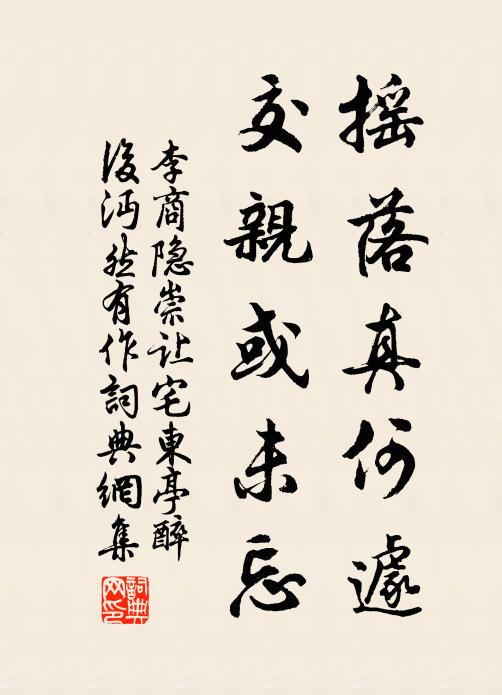 摇落真何遽
交親或未忘
李商隐崇让宅東亭醉
後沔然有作詞典網集
詞典
网印